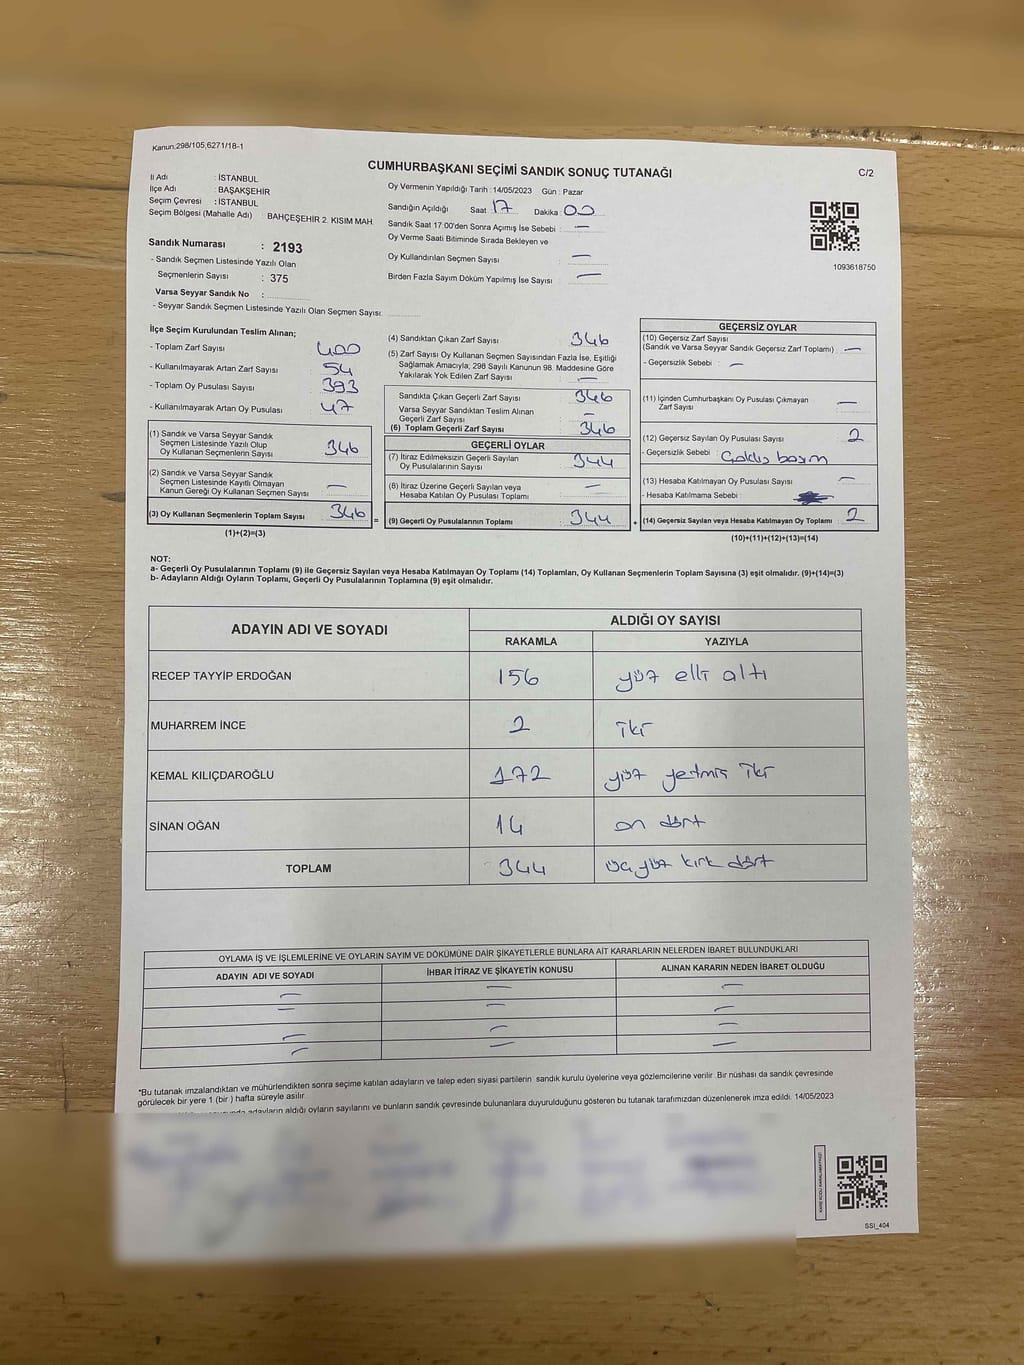 Kanun:298/105,6271/18-1
CUMHURBAŞKANI SEÇİMİ SANDIK SONUÇ TUTANAĞI
C/2
İl Adı : İSTANBUL
İlçe Adı : BAŞAKŞEHİR
Seçim Çevresi : İSTANBUL
Seçim Bölgesi (Mahalle Adı) : BAHÇEŞEHİR 2. KISIM MAH.
Sandık Numarası : 2193
- Sandık Seçmen Listesinde Yazılı Olan
Seçmenlerin Sayısı : 375
Varsa Seyyar Sandık No :
- Seyyar Sandık Seçmen Listesinde Yazılı Olan Seçmen Sayısı:
Oy Vermenin Yapıldığı Tarih : 14/05/2023 Gün : Pazar
Sandığın Açıldığı Saat 17 Dakika : 00
Sandık Saat 17:00'den Sonra Açımış İse Sebebi : —
Oy Verme Saati Bitiminde Sırada Bekleyen ve
Oy Kullandırılan Seçmen Sayısı —
Birden Fazla Sayım Döküm Yapılmış İse Sayısı : —
1093618750
İlçe Seçim Kurulundan Teslim Alınan;
- Toplam Zarf Sayısı : 400
- Kullanılmayarak Artan Zarf Sayısı : 54
- Toplam Oy Pusulası Sayısı : 393
- Kullanılmayarak Artan Oy Pusulası : 47
(1) Sandık ve Varsa Seyyar Sandık
Seçmen Listesinde Yazılı Olup
Oy Kullanan Seçmenlerin Sayısı : 346
(2) Sandık ve Varsa Seyyar Sandık
Seçmen Listesinde Kayıtlı Olmayan
Kanun Gereği Oy Kullanan Seçmen Sayısı : —
(3) Oy Kullanan Seçmenlerin Toplam Sayısı : 346
(1)+(2)=(3)
=
(4) Sandıktan Çıkan Zarf Sayısı : 346
(5) Zarf Sayısı Oy Kullanan Seçmen Sayısından Fazla İse, Eşitliği
Sağlamak Amacıyla; 298 Sayılı Kanunun 98. Maddesine Göre
Yakılarak Yok Edilen Zarf Sayısı : —
Sandıkta Çıkan Geçerli Zarf Sayısı : 346
Varsa Seyyar Sandıktan Teslim Alınan
Geçerli Zarf Sayısı : —
(6) Toplam Geçerli Zarf Sayısı : 346
GEÇERLİ OYLAR
(7) İtiraz Edilmeksizin Geçerli Sayılan
Oy Pusulalarının Sayısı : 344
(8) İtiraz Üzerine Geçerli Sayılan veya
Hesaba Katılan Oy Pusulası Toplamı : —
(9) Geçerli Oy Pusulalarının Toplamı : 344
+
GEÇERSİZ OYLAR
(10) Geçersiz Zarf Sayısı
(Sandık ve Varsa Seyyar Sandık Geçersiz Zarf Toplamı) : —
- Geçersizlik Sebebi : —
(11) İçinden Cumhurbaşkanı Oy Pusulası Çıkmayan
Zarf Sayısı : —
(12) Geçersiz Sayılan Oy Pusulası Sayısı : 2
- Geçersizlik Sebebi :
(13) Hesaba Katılmayan Oy Pusulası Sayısı : —
- Hesaba Katılmama Sebebi :
(14) Geçersiz Sayılan veya Hesaba Katılmayan Oy Toplamı : 2
(10)+(11)+(12)+(13)=(14)
NOT:
a- Geçerli Oy Pusulalarının Toplamı (9) ile Geçersiz Sayılan veya Hesaba Katılmayan Oy Toplamı (14) Toplamları, Oy Kullanan Seçmenlerin Toplam Sayısına (3) eşit olmalıdır. (9)+(14)=(3)
b- Adayların Aldığı Oyların Toplamı, Geçerli Oy Pusulalarının Toplamına (9) eşit olmalıdır.
ADAYIN ADI VE SOYADI ALDIĞI OY SAYISI
RAKAMLA YAZIYLA
RECEP TAYYİP ERDOĞAN 156 yüz elli altı
MUHARREM İNCE 2 iki
KEMAL KILIÇDAROĞLU 172 yüz yetmiş iki
SİNAN OĞAN 14 on dört
TOPLAM 344 üç yüz kırk dört
OYLAMA İŞ VE İŞLEMLERİNE VE OYLARIN SAYIM VE DÖKÜMÜNE DAİR ŞİKAYETLERLE BUNLARA AİT KARARLARIN NELERDEN İBARET BULUNDUKLARI
ADAYIN ADI VE SOYADI İHBAR İTİRAZ VE ŞİKAYETİN KONUSU ALINAN KARARIN NEDEN İBARET OLDUĞU
— — —
— — —
— — —
— — —
*Bu tutanak imzalandıktan ve mühürlendikten sonra seçime katılan adayların ve talep eden siyasi partilerin sandık kurulu üyelerine veya gözlemcilerine verilir. Bir nüshası da sandık çevresinde
görülecek bir yere 1 (bir ) hafta süreyle asılır.
adayların aldığı oyların sayılarını ve bunların sandık çevresinde bulunanlara duyurulduğunu gösteren bu tutanak tarafımızdan düzenlenerek imza edildi. 14/05/2023
KARE KODU KARALAMAYINIZ!
SSI_404